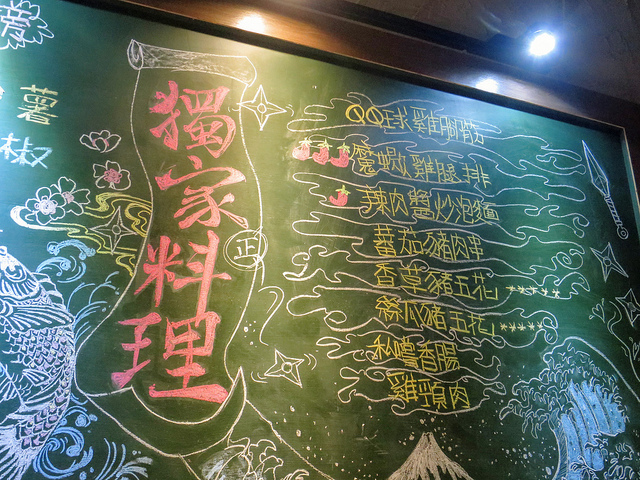 獨家料理
正
QQ球雞腳筋
雞腿排
辣肉醬炒泡麵
蕃茄豬肉串
香草豬五花
絲瓜豬五花
私嚐香腸
雞頸肉
薯
椒